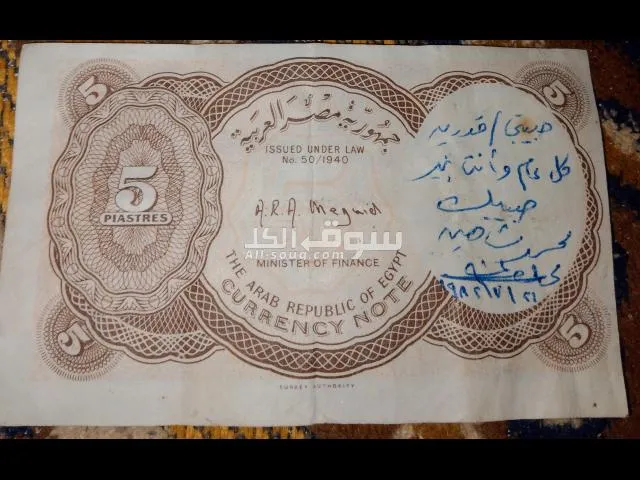 5
5
جمهورية مصر العربية
ISSUED UNDER LAW
No. 50/1940
5
PIASTRES
A.R.A. Meguid
MINISTER OF FINANCE
THE ARAB REPUBLIC OF EGYPT
CURRENCY NOTE
5
5
SURVEY AUTHORITY
حبيبي / قدريه
كل عام وأنت بخير
حبيبك
سوق الكل
All-souq.com